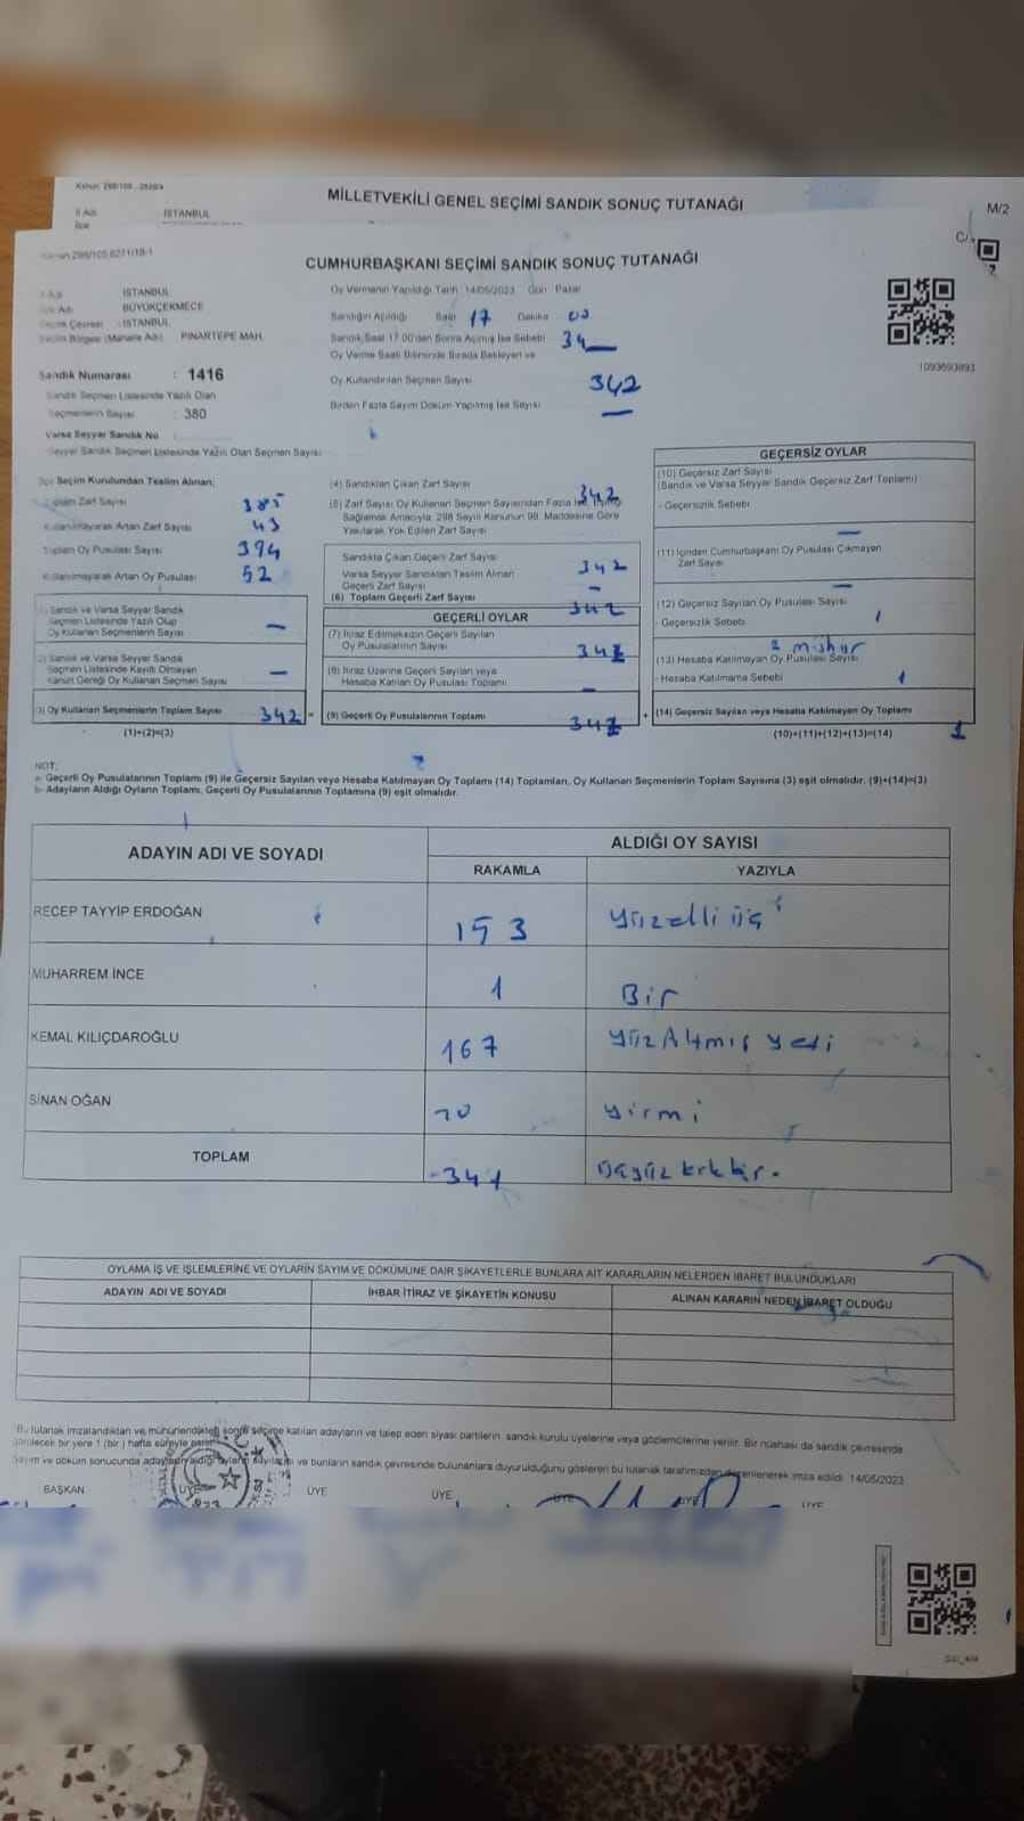 MİLLETVEKİLİ GENEL SEÇİMİ SANDIK SONUÇ TUTANAĞI
M/2
İl Adı İSTANBUL
CUMHURBAŞKANI SEÇİMİ SANDIK SONUÇ TUTANAĞI
İSTANBUL
BÜYÜKÇEKMECE
İSTANBUL
(Mahalle Adı) PINARTEPE MAH.
Sandık Numarası : 1416
Sandık Seçmen Listesinde Yazılı Olan
Seçmenlerin Sayısı : 380
Varsa Seyyar Sandık No
Seyyar Sandık Seçmen Listesinde Yazılı Olan Seçmen Sayısı
Oy Vermenin Yapıldığı Tarih 14/05/2023 Gün Pazar
Sandığın Açıldığı Saat 17 Dakika 00
Sandık Saat 17.00'den Sonra Açılmış İse Sebebi
Oy Verme Saati Bitiminde Sırada Bekleyen ve
Oy Kullandırılan Seçmen Sayısı 342
Birden Fazla Sayım Döküm Yapılmış İse Sayısı —
1093693893
İlçe Seçim Kurulundan Teslim Alınan;
Toplam Zarf Sayısı 385
Kullanılmayarak Artan Zarf Sayısı 43
Toplam Oy Pusulası Sayısı 394
Kullanılmayarak Artan Oy Pusulası 52
(1) Sandık ve Varsa Seyyar Sandık
Seçmen Listesinde Yazılı Olup
Oy Kullanan Seçmenlerin Sayısı —
(2) Sandık ve Varsa Seyyar Sandık
Seçmen Listesinde Kayıtlı Olmayan
Kanun Gereği Oy Kullanan Seçmen Sayısı —
(3) Oy Kullanan Seçmenlerin Toplam Sayısı 342 =
(1)+(2)=(3)
(4) Sandıktan Çıkan Zarf Sayısı 342
(5) Zarf Sayısı Oy Kullanan Seçmen Sayısından Fazla İse
Sağlamak Amacıyla, 298 Sayılı Kanunun 98. Maddesine Göre
Yakılarak Yok Edilen Zarf Sayısı
Sandıkta Çıkan Geçerli Zarf Sayısı 342
Varsa Seyyar Sandıktan Teslim Alınan
Geçerli Zarf Sayısı —
(6) Toplam Geçerli Zarf Sayısı 342
GEÇERLİ OYLAR
(7) İtiraz Edilmeksizin Geçerli Sayılan
Oy Pusulalarının Sayısı
(8) İtiraz Üzerine Geçerli Sayılan veya
Hesaba Katılan Oy Pusulası Toplamı —
(9) Geçerli Oy Pusulalarının Toplamı +
GEÇERSİZ OYLAR
(10) Geçersiz Zarf Sayısı
(Sandık ve Varsa Seyyar Sandık Geçersiz Zarf Toplamı)
- Geçersizlik Sebebi
—
(11) İçinden Cumhurbaşkanı Oy Pusulası Çıkmayan
Zarf Sayısı —
(12) Geçersiz Sayılan Oy Pusulası Sayısı
- Geçersizlik Sebebi 1
2 mühür
(13) Hesaba Katılmayan Oy Pusulası Sayısı
- Hesaba Katılmama Sebebi 1
(14) Geçersiz Sayılan veya Hesaba Katılmayan Oy Toplamı
(10)+(11)+(12)+(13)=(14) 1
NOT:
a- Geçerli Oy Pusulalarının Toplamı (9) ile Geçersiz Sayılan veya Hesaba Katılmayan Oy Toplamı (14) Toplamları, Oy Kullanan Seçmenlerin Toplam Sayısına (3) eşit olmalıdır. (9)+(14)=(3)
b- Adayların Aldığı Oyların Toplamı, Geçerli Oy Pusulalarının Toplamına (9) eşit olmalıdır.
ADAYIN ADI VE SOYADI ALDIĞI OY SAYISI
RAKAMLA YAZIYLA
RECEP TAYYİP ERDOĞAN 153 Yüzelli üç
MUHARREM İNCE 1 Bir
KEMAL KILIÇDAROĞLU 167 Yüz Altmış yedi
SİNAN OĞAN 20 Yirmi
TOPLAM 341 Üçyüz kırk bir.
OYLAMA İŞ VE İŞLEMLERİNE VE OYLARIN SAYIM VE DÖKÜMÜNE DAİR ŞİKAYETLERLE BUNLARA AİT KARARLARIN NELERDEN İBARET BULUNDUKLARI
ADAYIN ADI VE SOYADI İHBAR İTİRAZ VE ŞİKAYETİN KONUSU ALINAN KARARIN NEDEN İBARET OLDUĞU
Bu tutanak imzalandıktan ve mühürlendikten sonra seçime katılan adayların ve talep eden siyasi partilerin, sandık kurulu üyelerine veya gözlemcilerine verilir. Bir nüshası da sandık çevresinde
görülecek bir yere 1 (bir) hafta süreyle asılır.
Sayım ve döküm sonucunda adayların aldığı oyların sayıları ve bunların sandık çevresinde bulunanlara duyurulduğunu gösteren bu tutanak tarafımızdan düzenlenerek imza edildi. 14/05/2023
BAŞKAN ÜYE ÜYE ÜYE ÜYE ÜYE ÜYE